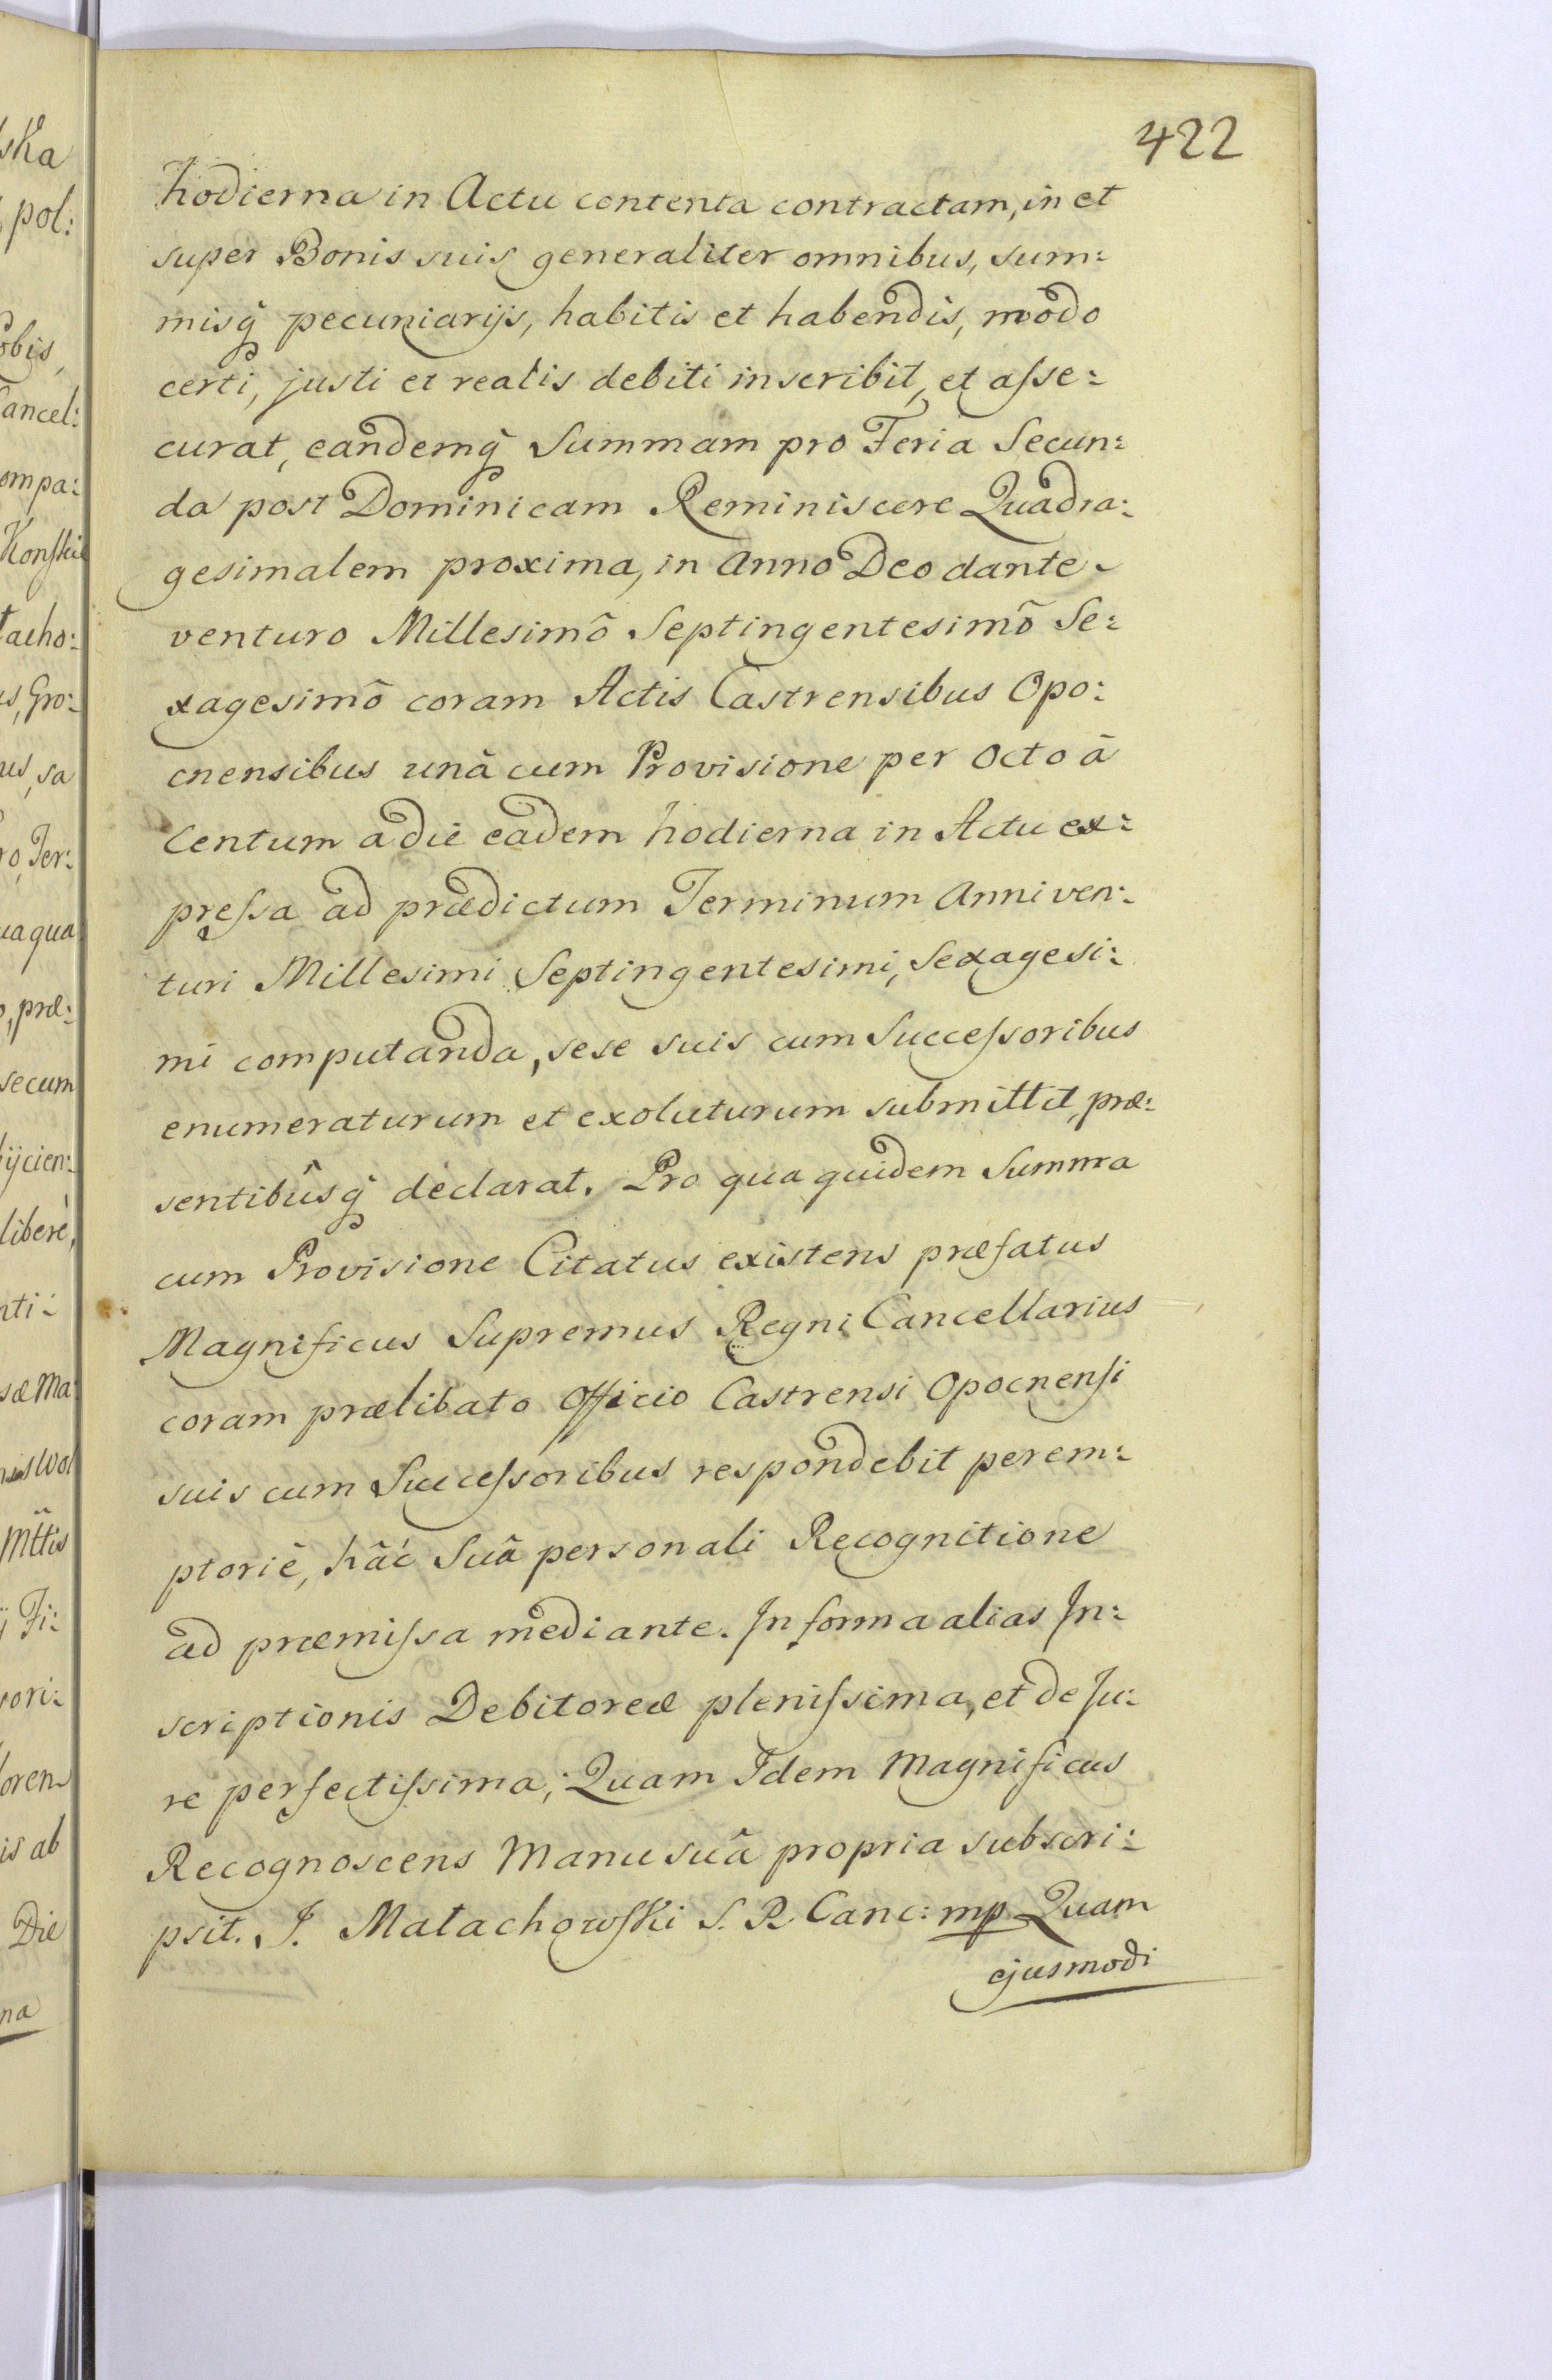 422
hodierna in Actu contenta contractam, in et
super Bonis suis generaliter omnibus, sum:
misq̃ pecuniarijs, habitis et habendis, modo
certi, justi et realis debiti inscribit, et aſse:
curat, eandemq̃ Summam pro Feria Secun:
da post Dominicam Reminiscere Quadra:
gesimalem proxima, in Anno Deo dante
venturo Millesimô Septingentesimô Se:
xagesimô coram Actis Castrensibus Opo:
cnensibus unâ cum Provisione per Octo â
Centum a die eadem hodierna in Actu ex:
preſsa ad prædictum Terminum Anni ven:
turi Millesimi Septingentesimi, Sexagesi:
mi computanda, sese suis cum Succeſsoribus
enumeraturum et exoluturum submittit, præ:
sentibûsq̃ declarat. Pro qua quidem Summa
cum Provisione Citatus existens præfatus
Magnificus Supremus Regni Cancellarius
coram prælibato Officio Castrensi Opocnenſi
suis cum Succeſsoribus respondebit perem:
ptoriè, hâc Suâ personali Recognitione
ad præmiſsa mediante. In forma alias In:
scriptionis Debitoreæ pleniſsima, et de Ju:
re perfectiſsima; Quam Idem Magnificus
Recognoscens Manu suâ propria subscri:
psit. J. Małachowſki S. R. Canc: mp Quam
ejusmodi
ska
pol:
obis,
Cancel:
ompa:
Konſkie
łacho:
us, Gro:
us, sa
ro, Ter:
ua qua
o, præ:
secum
ijcien:
liberè,
nti:
sæ Ma
Mttis
Fi:
sori:
loren
is ab
Die
na